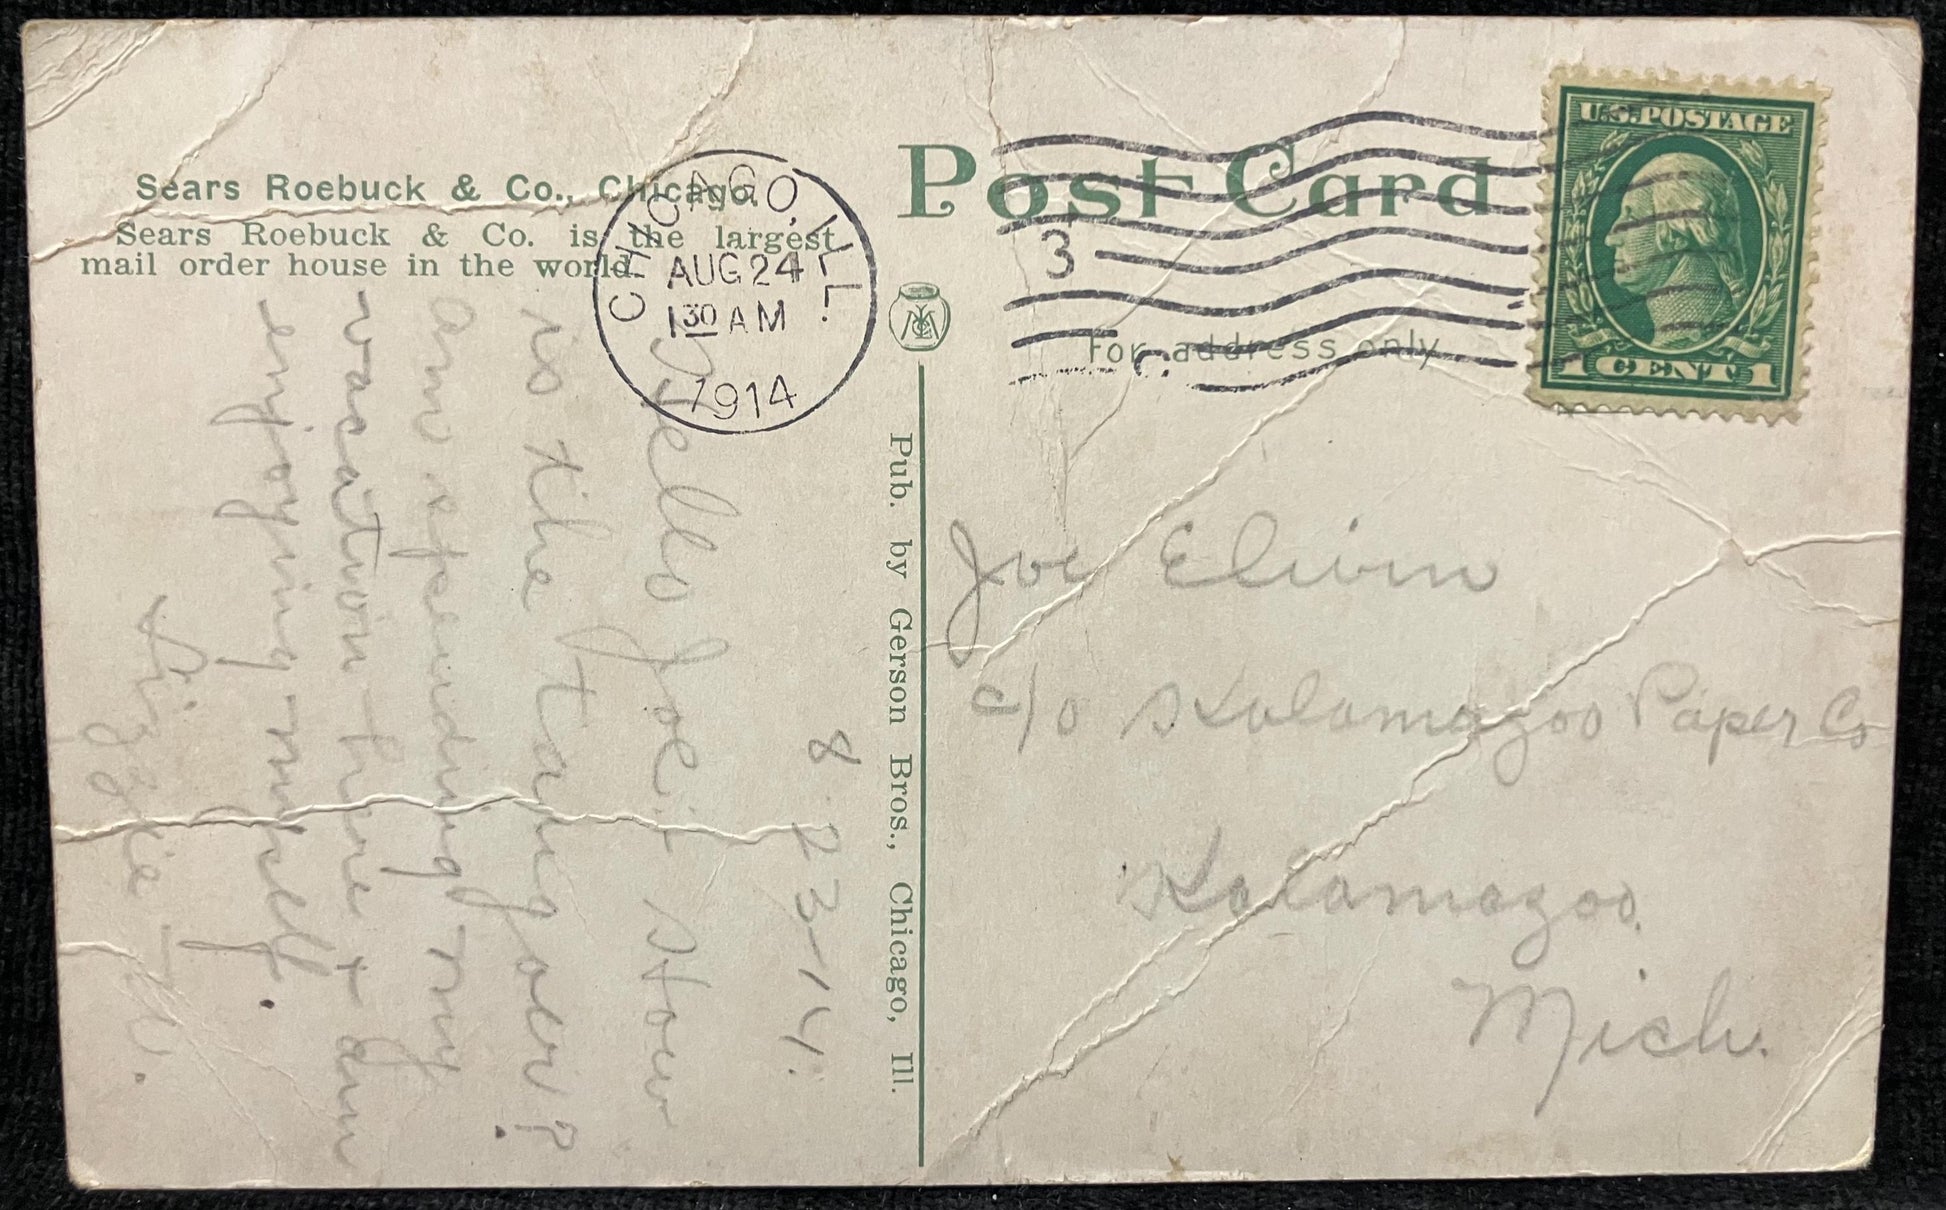 Sears Roebuck & Co., Chicago.
Sears Roebuck & Co. is the largest
mail order house in the world.
CHICAGO, ILL.
AUG 24
1 30 AM
1914
3
Post Card
For address only
U.S. POSTAGE
1 CENT 1
Pub. by Gerson Bros., Chicago, Ill.
8-23-14.
Hello Joe:- How
is the tango er?
Am spending my
vacation here & am
enjoying myself.
Lizzie
Joe Elwin
c/o Kalamazoo Paper Co
Kalamazoo.
Mich.